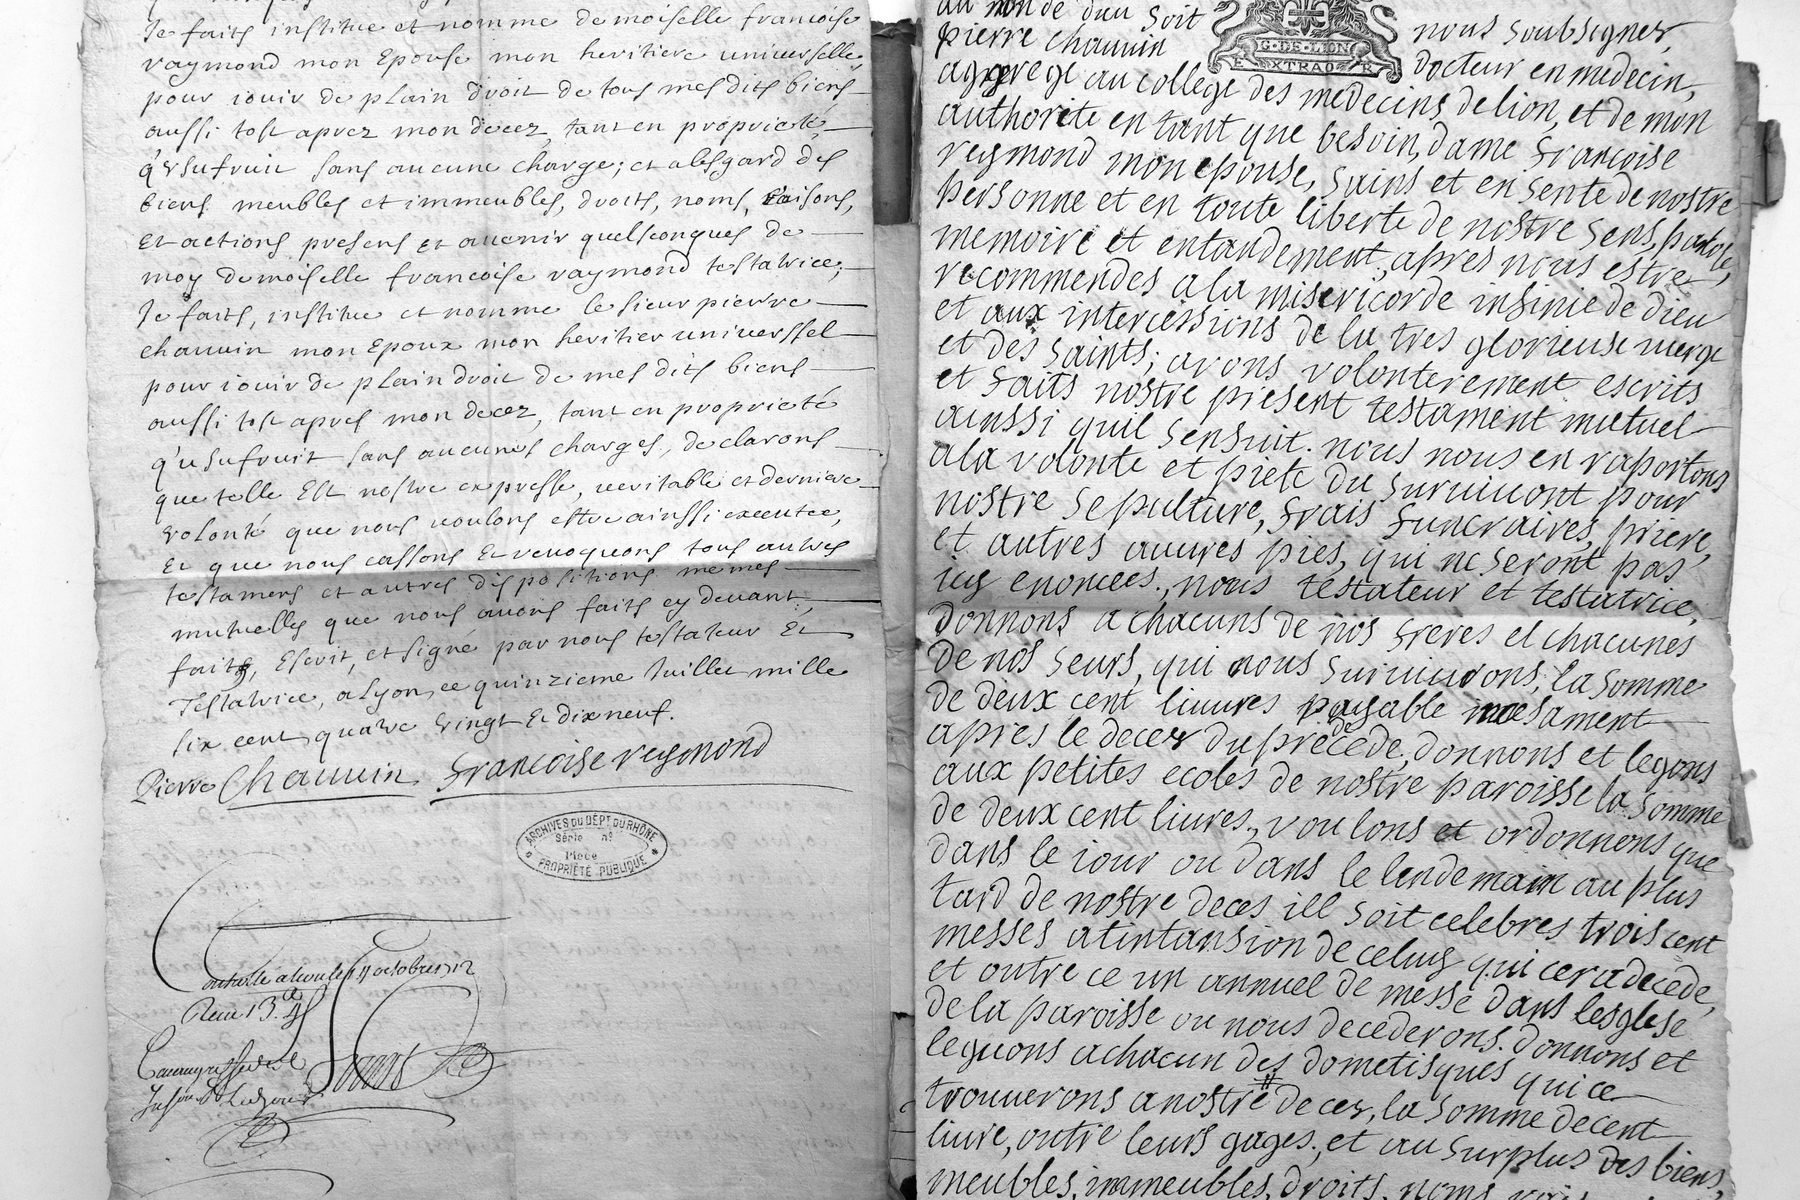 Je faits institue et nomme demoiselle francoise
raymond mon Epouse mon heritiere universelle
pour iouir de plain droit de tous mes dits biens
aussi tost aprez mon decez, tant en proprieté,
q'vsufruit sans aucune charge; et a lesgard des
biens meubles et immeubles, droits, noms, raisons,
Et actions presens Et auenir quelsconques de
moy demoiselle francoise raymond testatrice,
Je faits, institue et nomme le sieur pierre
chauuin mon Epoux mon heritier uniuerssel
pour iouir de plain droit de mes dits biens
aussi tost apres mon decez, tant en proprieté
q'usufruit sans aucunes charges, declarons
que telle Est nostre expresse, ueritable et derniere
volonté que nous uoulons estre ainssi executee,
Et que nous cassons Et reuoquons tous autres
testamens et autres dispositions mêmes
mutuelles que nous auons faits cy deuant,
faits, Escrit, et signé par nous testateur Et
Testatrice, a Lyon, ce quinzieme Juillet mille
six cent quatre vingt Et dix neuf.
Pierre Chauuin francoise reymond
ARCHIVES DU DÉPT DU RHÔNE
Série nº
Pièce
PROPRIÉTÉ PUBLIQUE
octobre 1712
au nom de dieu soit nous soubsignes,
pierre chauuin docteur en medecin,
G. DE LION
EXTRAO R
aggrege au college des medecins de lion, et de mon
authorite en tant que besoin, dame francoise
reymond mon epouse, sains et en sente de nostre
personne et en toute liberte de nostre sens, parole,
memoire et entandement, apres nous estre
recommendes a la misericorde infinie de dieu
et aux intercessions de la tres glorieuse vierge
et des saints; avons volonterement escrits
et faits nostre present testament mutuel
ainssi quil sensuit. nous nous en raportons
a la volonte et piete du suruiuant pour
nostre sepulture, frais funeraires, priere,
et autres auures pies, qui ne seront pas
icy enoncees, nous testateur et testatrice,
donnons a chacuns de nos freres et chacunes
de nos seurs, qui nous suruiuerons, la somme
de deux cent liuures payable
apres le decez du précédé, donnons et legons
aux petites ecoles de nostre paroisse la somme
de deux cent liures, voulons et ordonnons que
dans le iour ou dans le lendemain au plus
tard de nostre deces ill soit celebres trois cent
messes a lintansion de celuy qui cera decede,
et outre ce un annuel de messe dans lesglese
de la paroisse ou nous decederons. donnons et
leguons a chacun des dometisques qui ce
trouuerons a nostre decez, la somme de cent
liure, outre leurs gages, et au surplus des biens
meubles, immeubles, droits, noms,